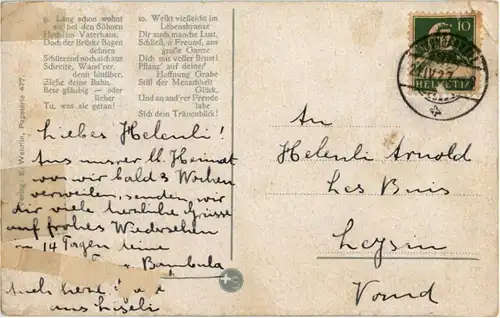 9. Lang schon wohnt
sie bei den Söhnen
Hoch im Vaterhaus,
Doch der Brücke Bogen
dehnen
Schützend noch sich aus
Schreite, Wand'rer,
denn hinüber,
Ziehe deine Bahn.
Bete gläubig – oder
lieber
Tu, was sie getan!
10. Welkt vielleicht im
Lebenskranze
Dir auch manche Lust,
Schließ, o Freund, ans
große Ganze
Dich mit voller Brust!
Pflanz' auf deiner
Hoffnung Grabe
Still der Menschheit
Glück,
Und an and'rer Freude
labe
Sich dein Tränenblick!
E. Wehrlin,
10
HELVETIA
Liebes Helenli!
Aus unsrer lb. Heimat
wo wir bald 3 Wochen
verweilen, senden wir
dir viele herzliche Grüsse
auf frohes Wiedersehen
in 14 Tagen deine
Bambula
Auch herz
aus Liseli
An
Helenli Arnold
Les Buis
Leysin
Vaud